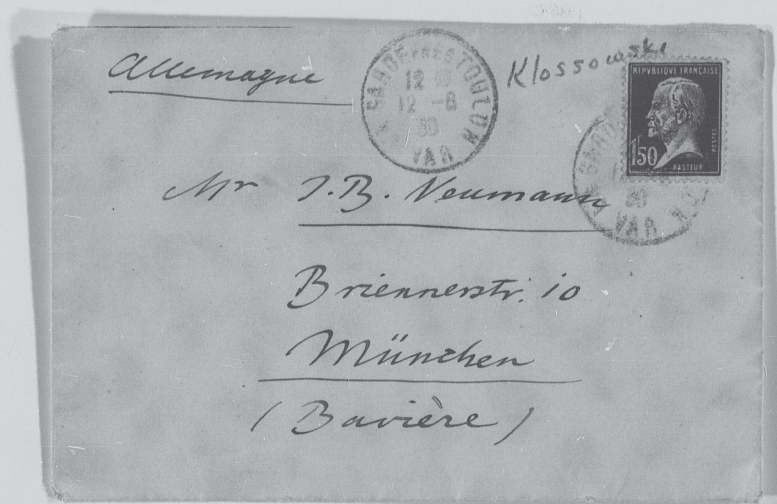 Allemagne
LA GARDE PRES TOULON
12
12 - 8
30
VAR
Klossowski
REPUBLIQUE FRANÇAISE
1F50
POSTES
PASTEUR
GARDE
30
VAR
Mr J. B. Neumann
Briennerstr. 10
München
(Bavière)